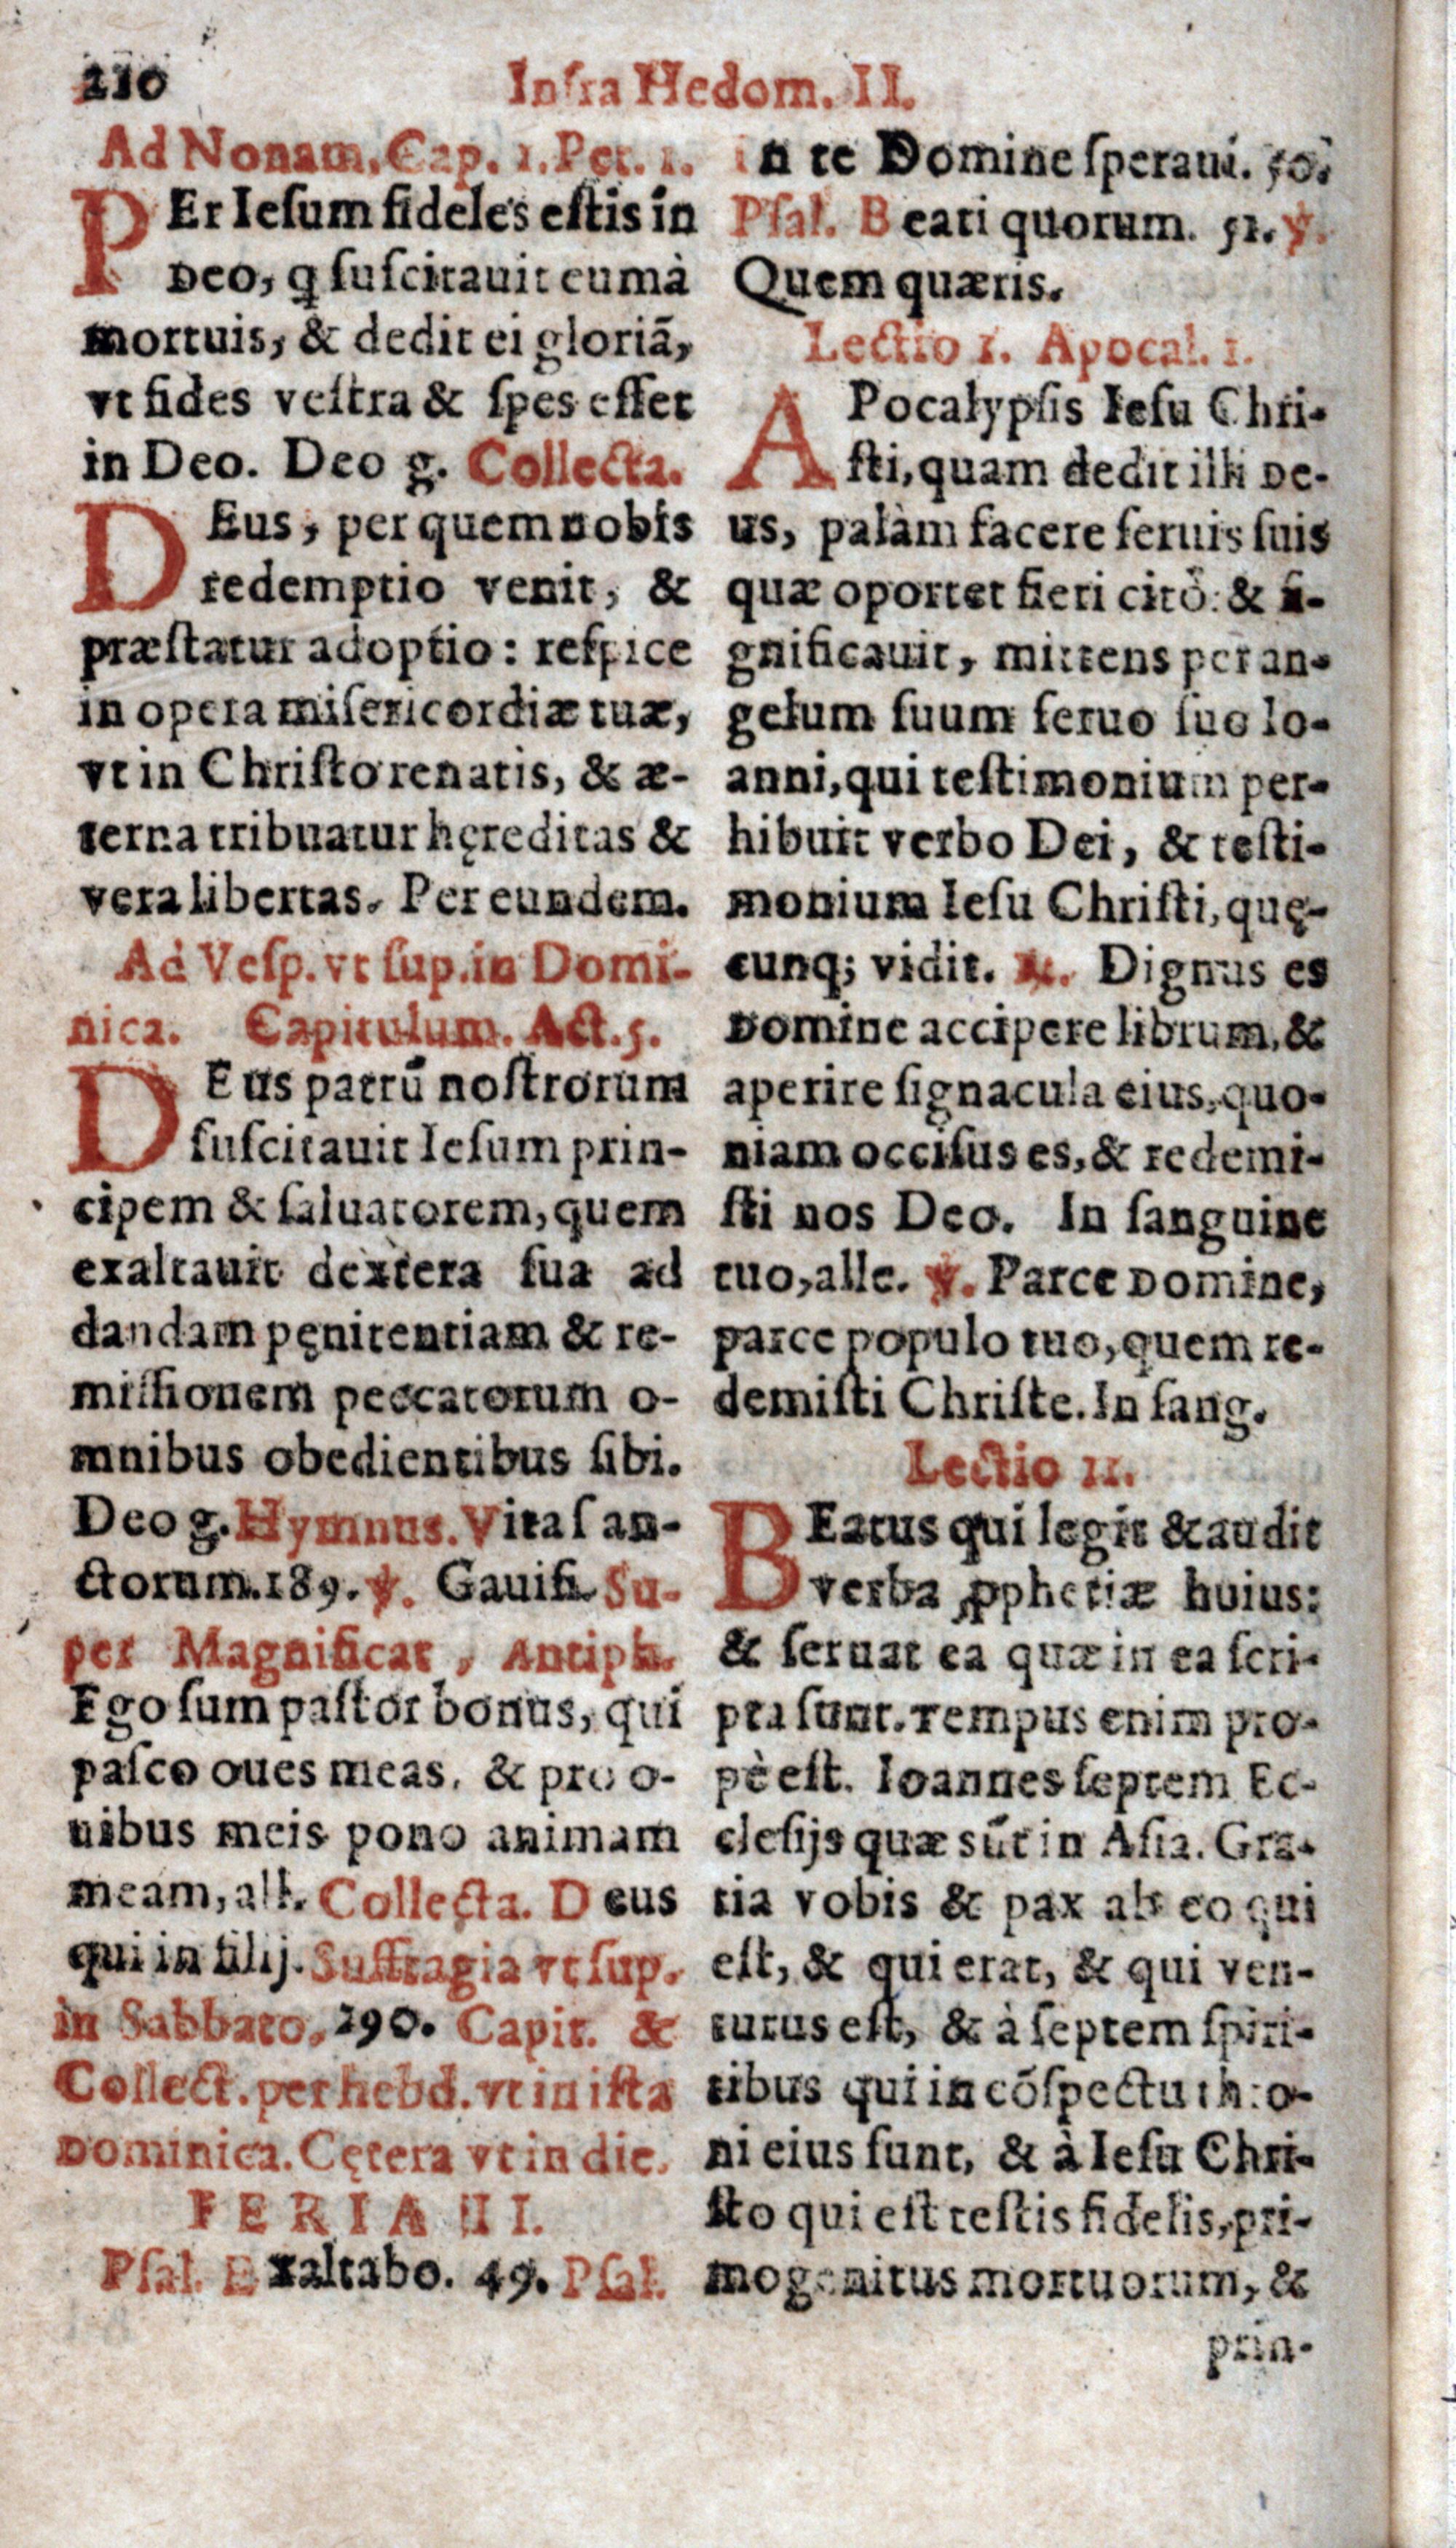 210
Infra Hedom. II.
Ad Nonam. Cap. 1. Pet. 1.
PEr Ieſum fideles eſtis in
Deo, ꝗ ſuſcitauit eum à
mortuis, & dedit ei gloriā,
vt fides veſtra & ſpes eſſet
in Deo. Deo g. Collecta.
DEus, per quem nobis
redemptio venit, &
præſtatur adoptio: reſpice
in opera miſericordiæ tuæ,
vt in Chriſto renatis, & æ-
terna tribuatur hęreditas &
vera libertas. Per eundem.
Ad Veſp. vt ſup. in Domi-
nica. Capitulum. Act. 5.
DEus patrū noſtrorum
ſuſcitauit Ieſum prin-
cipem & ſaluatorem, quem
exaltauit dextera ſua ad
dandam pęnitentiam & re-
miſſionem peccatorum o-
mnibus obedientibus ſibi.
Deo g. Hymnus. Vita ſan-
ctorum. 189. ℣. Gauiſi. Su-
per Magnificat, Antiph.
Ego ſum paſtor bonus, qui
paſco oues meas, & pro o-
uibus meis pono animam
meam, all. Collecta. Deus
qui in filij. Suffragia vt ſup.
in Sabbato, 190. Capit. &
Collect. per hebd. vt in iſta
Dominica. Cętera vt in die.
FERIA II.
Pſal. Exaltabo. 49. Pſal.
in te Domine ſperaui. 50.
Pſal. Beati quorum. 51. ℣.
Quem quæris.
Lectio 1. Apocal. 1.
APocalypſis Ieſu Chri-
ſti, quam dedit illi De-
us, palàm facere ſeruis ſuis
quæ oportet fieri citò: & ſi-
gnificauit, mittens per an-
gelum ſuum ſeruo ſuo Io-
anni, qui teſtimonium per-
hibuit verbo Dei, & teſti-
monium Ieſu Chriſti, quę-
cunq; vidit. ℟. Dignus es
Domine accipere librum, &
aperire ſignacula eius, quo-
niam occiſus es, & redemi-
ſti nos Deo. In ſanguine
tuo, alle. ℣. Parce Domine,
parce populo tuo, quem re-
demiſti Chriſte. In ſang.
Lectio 11.
BEatus qui legit & audit
verba ꝓphetiæ huius:
& ſeruat ea quæ in ea ſcri-
pta ſunt. Tempus enim pro-
pè eſt. Ioannes ſeptem Ec-
cleſijs quæ sūt in Aſia. Gra-
tia vobis & pax ab eo qui
eſt, & qui erat, & qui ven-
turus eſt, & à ſeptem ſpiri-
tibus qui in cōſpectu thro-
ni eius ſunt, & à Ieſu Chri-
ſto qui eſt teſtis fidelis, pri-
mogenitus mortuorum, &
prin-